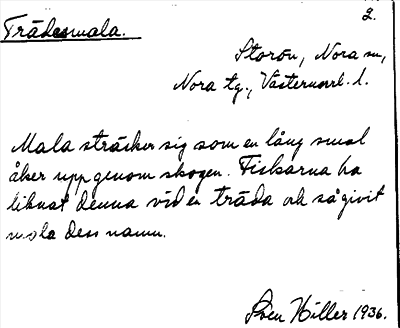 2.
Trädesmala.
Storön, Nora sn,
Nora tg., Västernorrl. l.
Mala sträcker sig som en lång smal
åker upp genom skogen. Fiskarna ha
liknat denna vid en träda och så givit
mala dess namn.
Sven Hiller 1936.